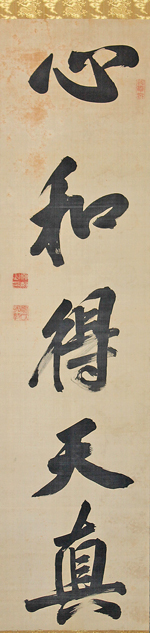 心和得天真